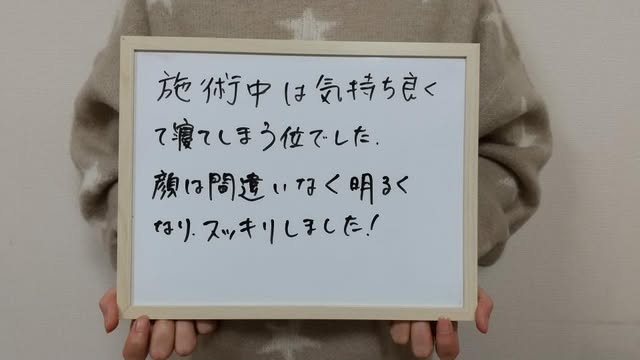 施術中は気持ち良く
て寝てしまう位でした.
顔は間違いなく明るく
なり.スッキリしました!